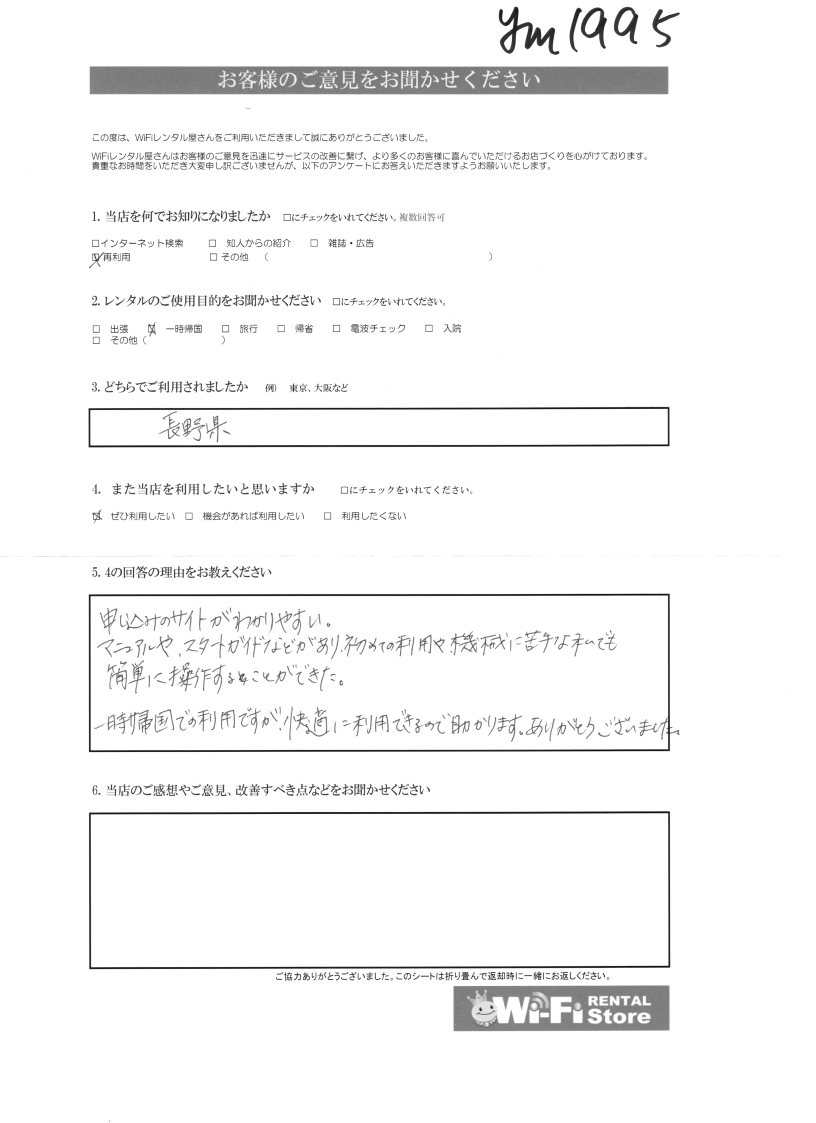 ym1995
お客様のご意見をお聞かせください
この度は、WiFiレンタル屋さんをご利用いただきまして誠にありがとうございました。
WiFiレンタル屋さんはお客様のご意見を迅速にサービスの改善に繋げ、より多くのお客様に喜んでいただけるお店づくりを心がけております。
貴重なお時間をいただき大変申し訳ございませんが、以下のアンケートにお答えいただきますようお願いいたします。
1. 当店を何でお知りになりましたか □にチェックをいれてください。複数回答可
□インターネット検索 □ 知人からの紹介 □ 雑誌・広告
☒再利用 □ その他 ( )
2. レンタルのご使用目的をお聞かせください □にチェックをいれてください。
□ 出張 ☒ 一時帰国 □ 旅行 □ 帰省 □ 電波チェック □ 入院
□ その他 ( )
3. どちらでご利用されましたか 例) 東京、大阪など
長野県
4. また当店を利用したいと思いますか □にチェックをいれてください。
☒ ぜひ利用したい □ 機会があれば利用したい □ 利用したくない
5. 4の回答の理由をお教えください
申し込みのサイトがわかりやすい。
マニュアルや、スタートガイドなどがあり、初めての利用や機械に苦手な私でも
簡単に操作することができた。
一時帰国での利用ですが、快適に利用できるので助かります。ありがとうございました。
6. 当店のご感想やご意見、改善すべき点などをお聞かせください
ご協力ありがとうございました。このシートは折り畳んで返却時に一緒にお返しください。
Wi-Fi RENTAL Store